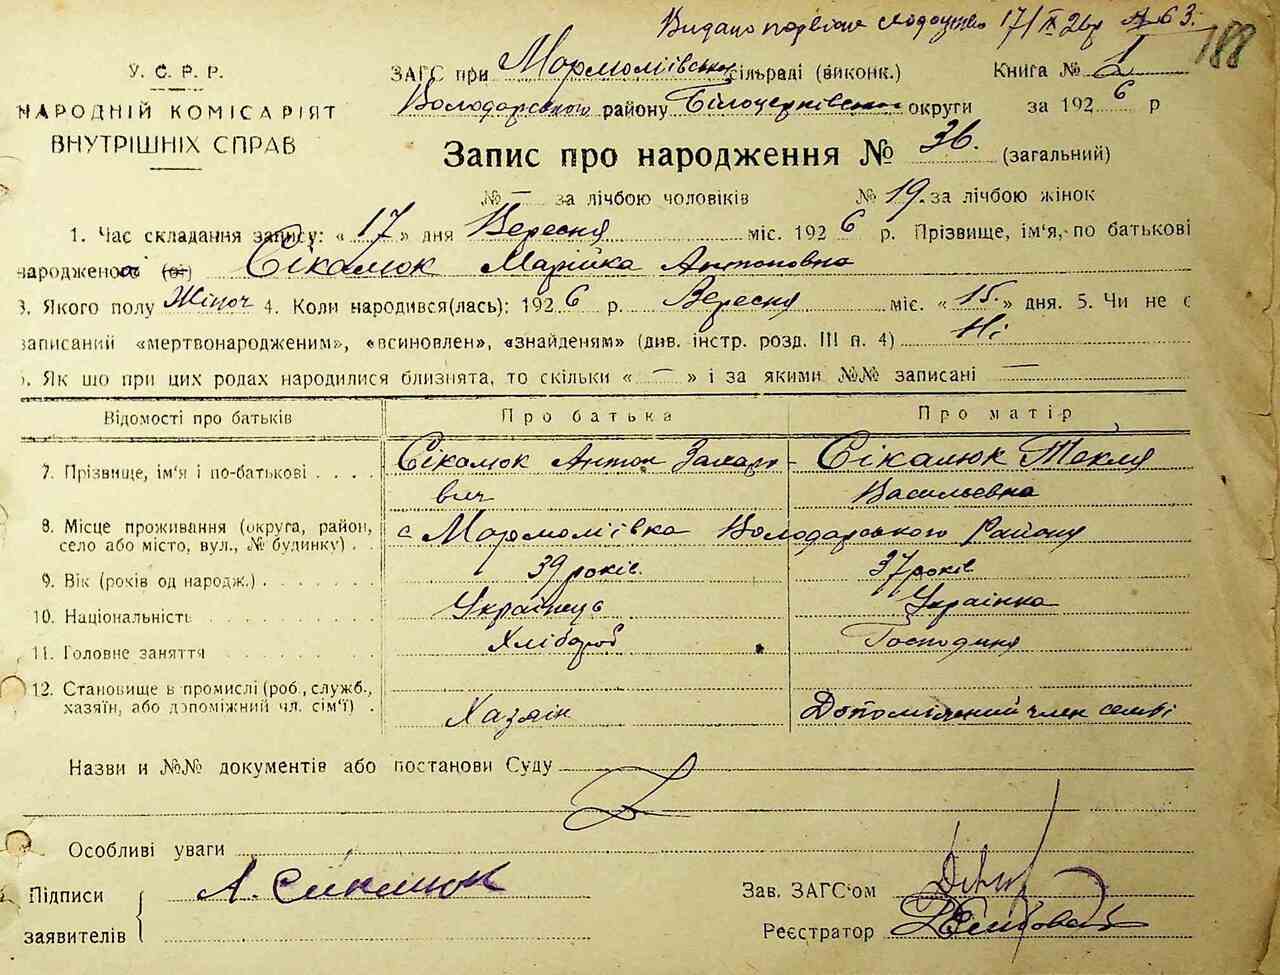 Видано 17/IX 26 р № 63.
188
У. С. Р. Р.
НАРОДНІЙ КОМІСАРІЯТ
ВНУТРІШНІХ СПРАВ
ЗАГС при Мармоліївській сільраді (виконк.) Книга № 1
Володарського району Білоцерківської округи за 1926 р
Запис про народження № 36. (загальний)
№ — за лічбою чоловіків № 19. за лічбою жінок
1. Час складання запису: « 17 » дня Вересня міс. 1926 р. Прізвище, ім'я, по батькові
народженоі (ої) Сікалюк Марійка Антоновна
3. Якого полу Жіноч 4. Коли народився(лась): 1926 р. Вересня міс. « 15. » дня. 5. Чи не є
записаний «мертвонародженим», «всиновлен», «знайденям» (див. інстр. розд. III п. 4) Ні
6. Як що при цих родах народилися близнята, то скільки « — » і за якими №№ записані —
Відомості про батьків Про батька Про матір
7. Прізвище, ім'я і по-батькові . . . . Сікалюк Антон Захаро- Сікалюк Текля
вич Васильевна
8. Місце проживання (округа, район,
село або місто, вул., № будинку) . . с Мармоліївка Володарського Району
9. Вік (років од народж.) . . . . . . 39 років. 37 років
10. Національність . . . . . . . . . Українець Українка
11. Головне заняття . . . . . . . . Хлібороб Господиня
12. Становище в промислі (роб., служб.,
хазяїн, або допоміжний чл. сім'ї) . Хазяїн Допоміжний член семьі
Назви и №№ документів або постанови Суду
Особливі уваги
Підписи А. Сикалюк Зав. ЗАГС'ом
заявителів Реєстратор